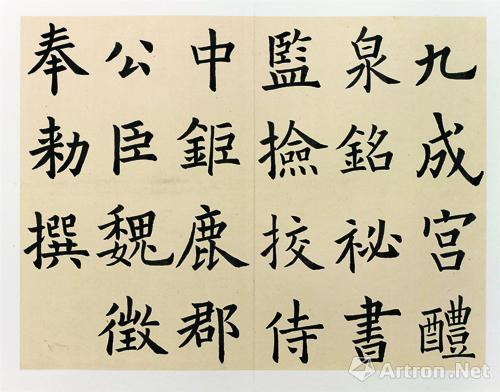 九成宮醴
泉銘祕書
監撿挍侍
中鉅鹿郡
公臣魏徵
奉勑撰
Artron.Net